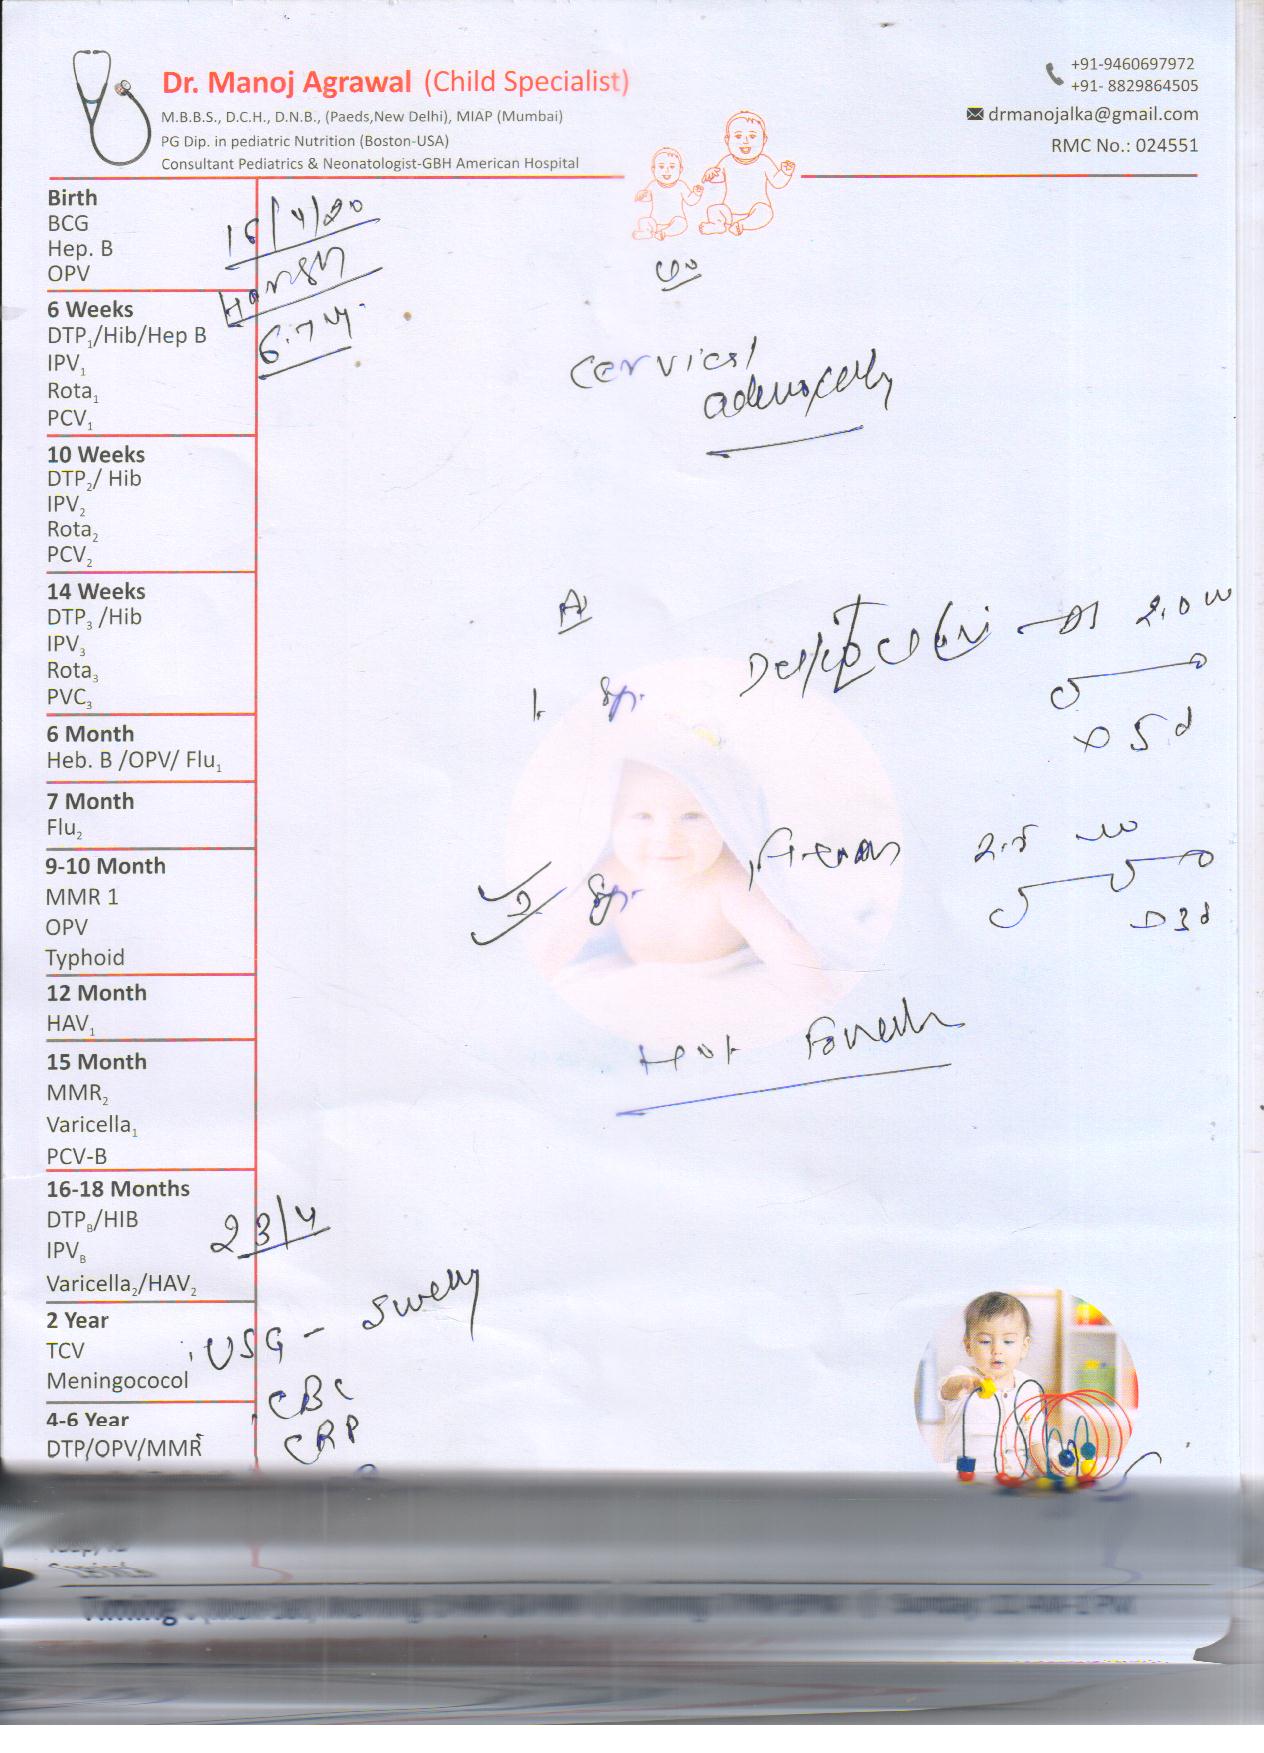 Dr. Manoj Agrawal (Child Specialist)
M.B.B.S., D.C.H., D.N.B., (Paeds,New Delhi), MIAP (Mumbai)
PG Dip. in pediatric Nutrition (Boston-USA)
Consultant Pediatrics & Neonatologist-GBH American Hospital
+91-9460697972
+91- 8829864505
drmanojalka@gmail.com
RMC No.: 024551
Birth
BCG
Hep. B
OPV
6 Weeks
DTP₁/Hib/Hep B
IPV₁
Rota₁
PCV₁
10 Weeks
DTP₂/ Hib
IPV₂
Rota₂
PCV₂
14 Weeks
DTP₃ /Hib
IPV₃
Rota₃
PVC₃
6 Month
Heb. B /OPV/ Flu₁
7 Month
Flu₂
9-10 Month
MMR 1
OPV
Typhoid
12 Month
HAV₁
15 Month
MMR₂
Varicella₁
PCV-B
16-18 Months
DTP_B/HIB
IPV_B
Varicella₂/HAV₂
2 Year
TCV
Meningococol
4-6 Year
DTP/OPV/MMR
Harsh
cervical
1. Syp.
x 5d
2. Syp.
Hot
23/4
USG -
CBC
CRP